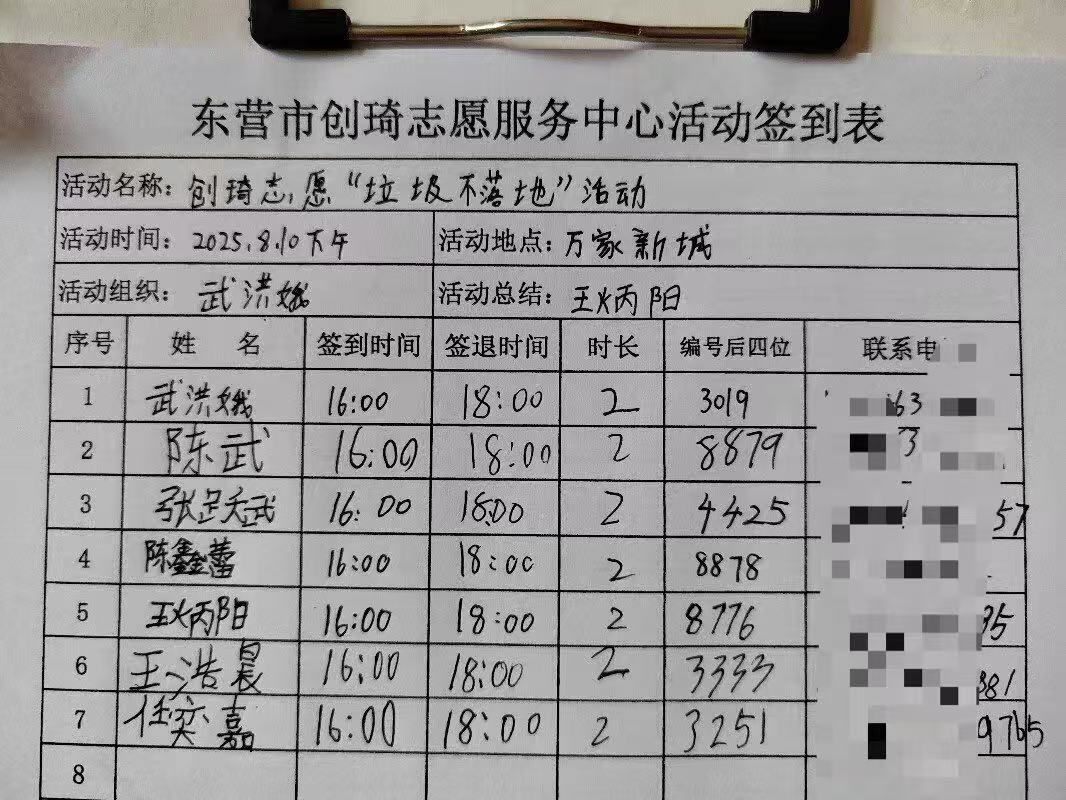 东营市创琦志愿服务中心活动签到表
活动名称: 创琦志愿“垃圾不落地”活动
活动时间: 2025.8.10下午 活动地点: 万家新城
活动组织: 武洪娥 活动总结: 王炳阳
序号 姓 名 签到时间 签退时间 时长 编号后四位 联系电
1 武洪娥 16:00 18:00 2 3019 63
2 陈武 16:00 18:00 2 8879 3
3 16:00 18:00 2 4425 57
4 陈鑫蕾 16:00 18:00 2 8878
5 王炳阳 16:00 18:00 2 8776 35
6 王浩晨 16:00 18:00 2 3333 881
7 任奕嘉 16:00 18:00 2 3251 9765
8